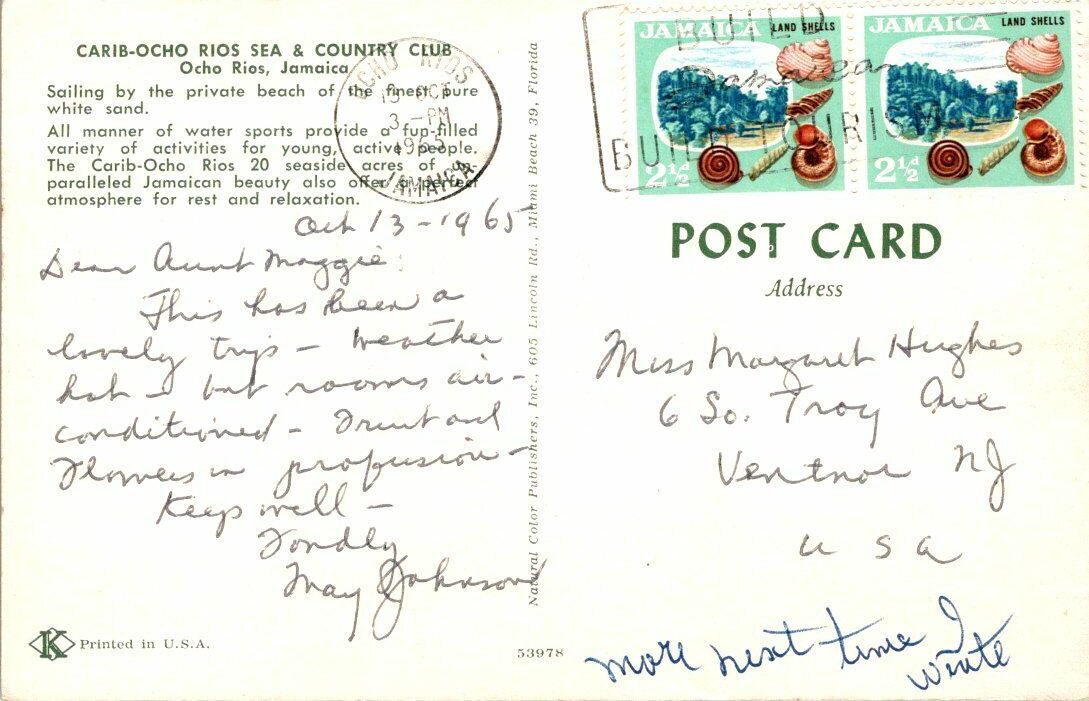 CARIB-OCHO RIOS SEA & COUNTRY CLUB
Ocho Rios, Jamaica
Sailing by the private beach of the finest pure
white sand.
All manner of water sports provide a fun-filled
variety of activities for young, active people.
The Carib-Ocho Rios 20 seaside acres of un-
paralleled Jamaican beauty also offer a perfect
atmosphere for rest and relaxation.
OCHO RIOS
13 OCT
3 - PM
1965
JAMAICA
Oct 13 - 1965
Dear Aunt Maggie:
This has been a
lovely trip - weather
hot - but rooms air-
conditioned - Fruit and
Flowers in profusion -
Keep well -
Fondly
May Johnson
K Printed in U.S.A.
53978
Natural Color Publishers, Inc., 605 Lincoln Rd., Miami Beach 39, Florida
BUILD
Jamaica
BUILD TOURISM
JAMAICA LAND SHELLS
2½d
JAMAICA LAND SHELLS
2½d
POST CARD
Address
Miss Margaret Hughes
6 So. Troy Ave
Ventnor NJ
U S A
more next time I
write